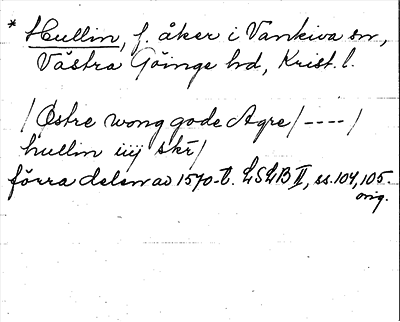 * Hullin, f. åker i Vankiva sn,
Västra Göinge hd, Krist. l.
/Østre wong gode Agre/----/
hullin iiij skr/
förra delen av 1570-t. LSLB II, ss. 104, 105.
orig.